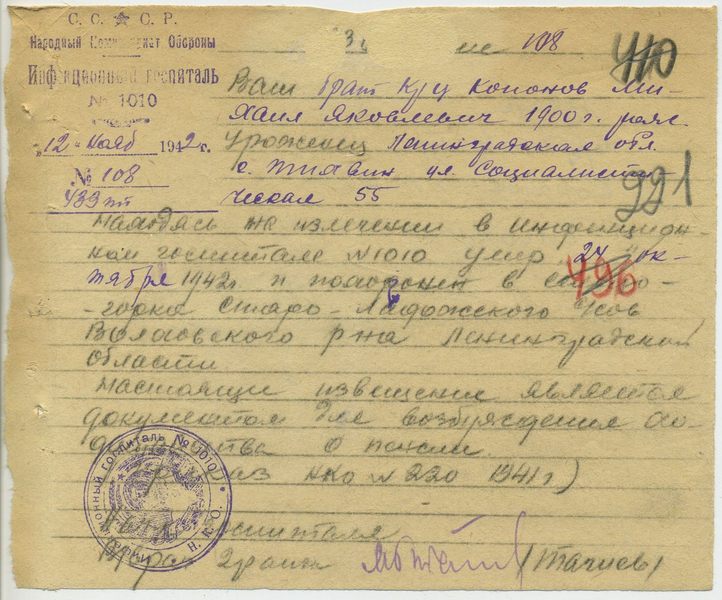 С. С. С. Р.
Народный Комиссариат Обороны
Инфекционный госпиталь
№ 1010
"12" нояб 1942 г.
№ 108
499 пт
З
108
410
Ваш брат кр-ц Кононов Ми-
хаил Яковлевич 1900 г. рожд.
Уроженец Ленинградская обл.
г. Тихвин ул. Социалисти
ческая 55
991
находясь на излечении в инфекцион-
ном госпитале №1010 умер "24" ок-
тября 1942г и похоронен в
496
Старо-Ладожского
Волховского р-на Ленинградской
области.
Настоящи извещения является
документом для возбуждения хо-
датайства о пенсии.
(приказ НКО №220 1941г)
Инфекционный госпиталь № 1010
Н. К. О.
госпиталя
Врач 2 ранга
(Тачиев)